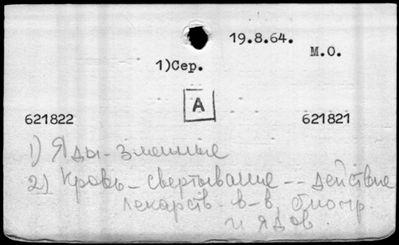 19.8.64.
М.О.
1)Сер.
А
621822 621821
1) Яды-змеиные
2) Кровь-свертывание -- действие
лекарств. в-в.
и ядов.